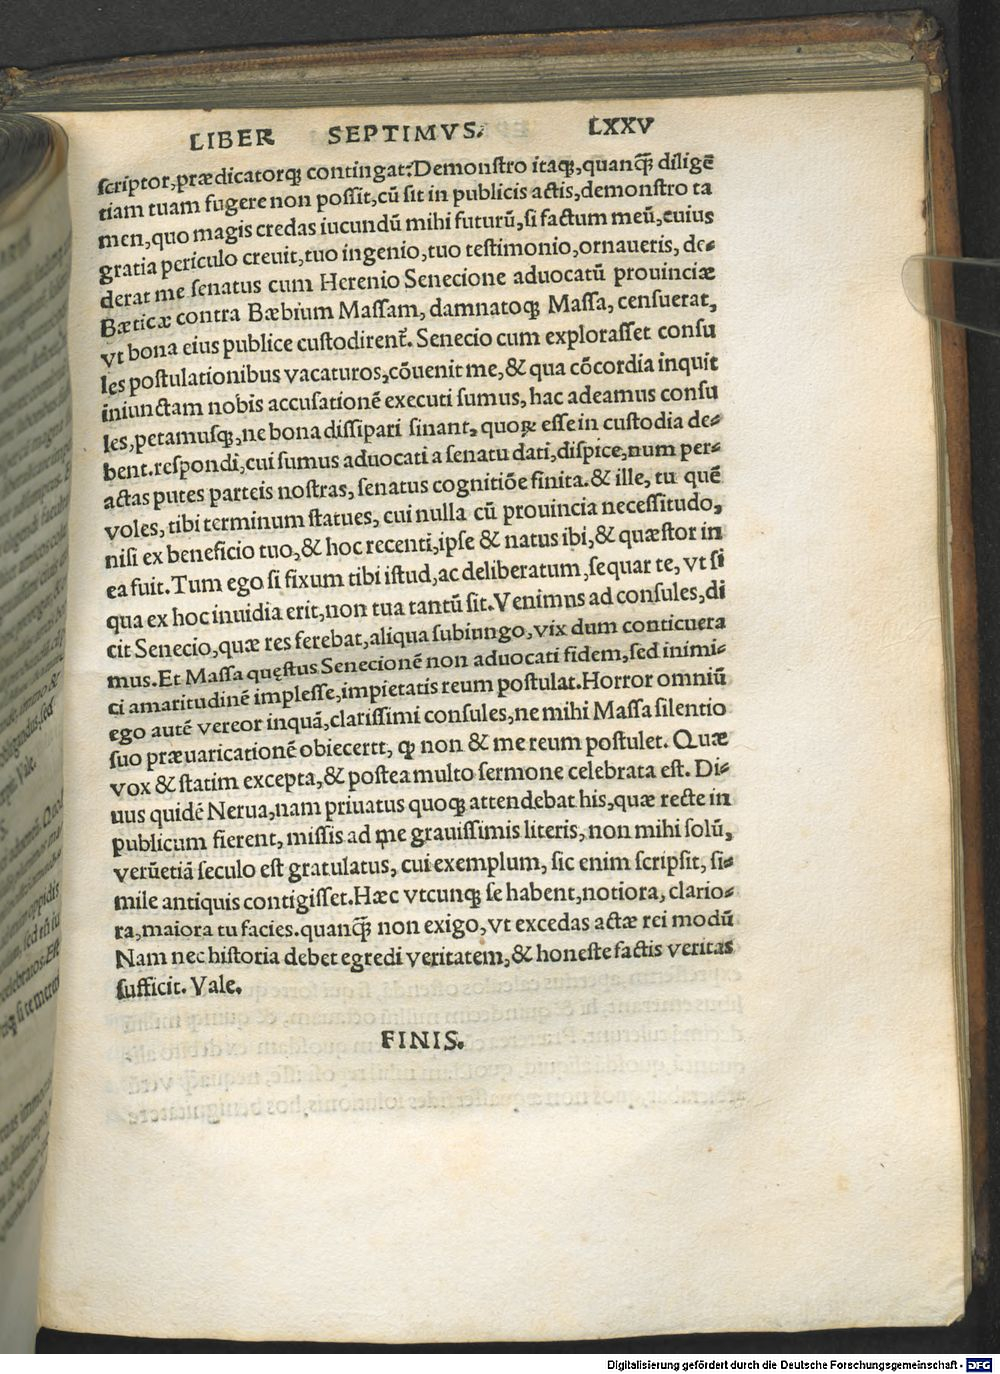 LIBER SEPTIMVS. LXXV
scriptor,prædicatorqꝫ contingat:Demonstro itaqꝫ,quanqꝫ̃ diligē
tiam tuam fugere non possit,cū sit in publicis actis,demonstro ta
men,quo magis credas iucundū mihi futurū,si factum meū,cuius
gratia periculo creuit,tuo ingenio,tuo testimonio,ornaueris, de-
derat me senatus cum Herenio Senecione aduocatū prouinciæ
Bæticæ contra Bæbium Massam, damnatoqꝫ Massa, censuerat,
vt bona eius publice custodirent̃. Senecio cum explorasset consu
les postulationibus vacaturos,cōuenit me,& qua cōcordia inquit
iniunctam nobis accusationē executi sumus, hac adeamus consu
les,petamusqꝫ,ne bona dissipari sinant, quoꝝ esse in custodia de-
bent.respondi,cui sumus aduocati a senatu dati,dispice,num per-
actas putes parteis nostras, senatus cognitiōe finita.& ille, tu quē
voles, tibi terminum statues, cui nulla cū prouincia necessitudo,
nisi ex beneficio tuo,& hoc recenti,ipse & natus ibi,& quæstor in
ea fuit.Tum ego si fixum tibi istud,ac deliberatum,sequar te, vt si
qua ex hoc inuidia erit,non tua tantū sit.Venimns ad consules,di
cit Senecio,quæ res ferebat,aliqua subiungo,vix dum conticuera
mus.Et Massa quęstus Senecionē non aduocati fidem,sed inimi-
ci amaritudinē implesse,impietatis reum postulat.Horror omniū
ego autē vereor inquā,clarissimi consules,ne mihi Massa silentio
suo præuaricationē obiecertt, ꝙ non & me reum postulet. Quæ
vox & statim excepta,& postea multo sermone celebrata est. Di-
uus quidē Nerua,nam priuatus quoqꝫ attendebat his,quæ recte in
publicum fierent, missis ad me grauissimis literis, non mihi solū,
verūetiā seculo est gratulatus, cui exemplum, sic enim scripsit, si-
mile antiquis contigisset.Hæc vtcunqꝫ se habent,notiora, clario-
ra,maiora tu facies.quanqꝫ̃ non exigo,vt excedas actæ rei modū
Nam nec historia debet egredi veritatem,& honeste factis veritas
sufficit. Vale.
FINIS.
Digitalisierung gefördert durch die Deutsche Forschungsgemeinschaft - DFG